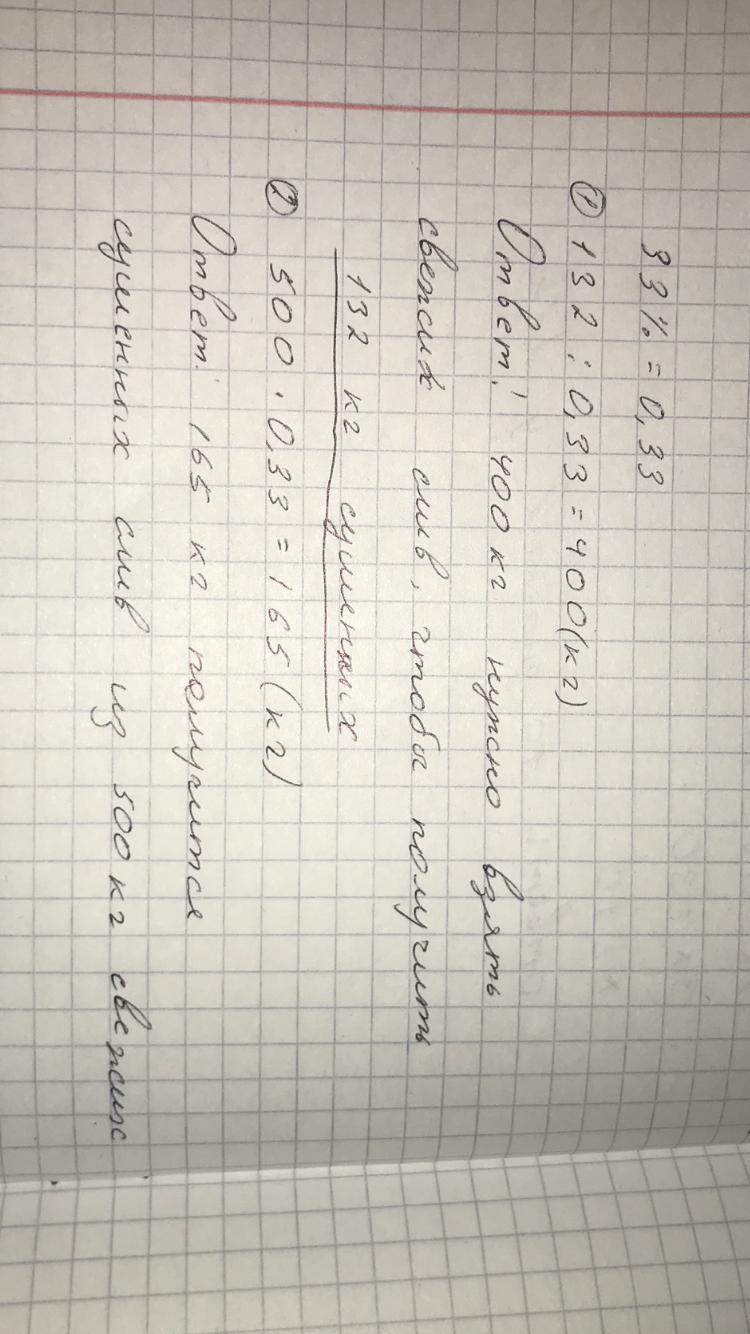 33% = 0,33
① 132 : 0,33 = 400(кг)
Ответ: 400 кг нужно взять
свежих слив, чтобы получить
132 кг сушенных
② 500 · 0,33 = 165 (кг)
Ответ: 165 кг получится
сушенных слив из 500 кг свежих